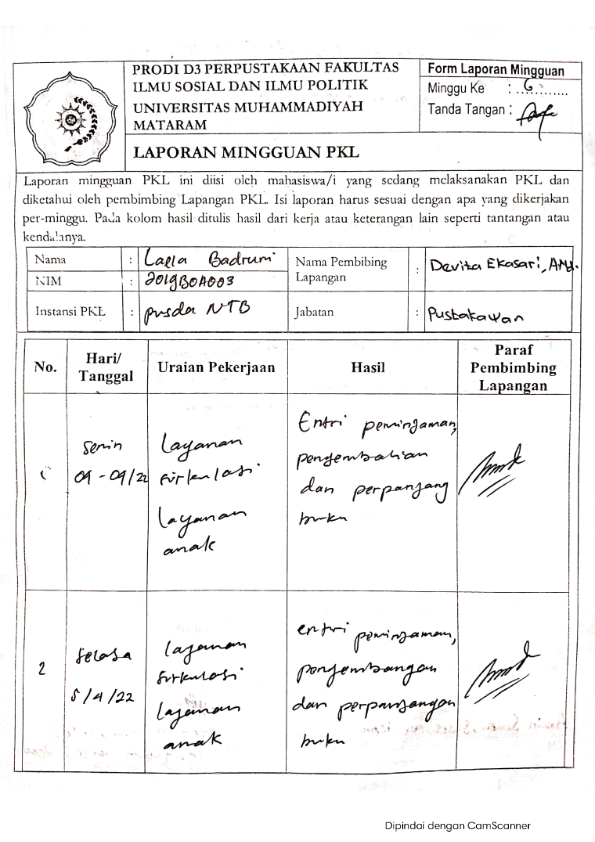 PRODI D3 PERPUSTAKAAN FAKULTAS
ILMU SOSIAL DAN ILMU POLITIK
UNIVERSITAS MUHAMMADIYAH
MATARAM
LAPORAN MINGGUAN PKL
Form Laporan Mingguan
Minggu Ke : 6
Tanda Tangan :
Laporan mingguan PKL ini diisi oleh mahasiswa/i yang sedang melaksanakan PKL dan
diketahui oleh pembimbing Lapangan PKL. Isi laporan harus sesuai dengan apa yang dikerjakan
per-minggu. Pada kolom hasil ditulis hasil dari kerja atau keterangan lain seperti tantangan atau
kendalanya.
Nama : Laela Badrumi
NIM : 2019B0A003
Nama Pembibing
Lapangan : Devita Ekasari, AMd.
Instansi PKL : pusda NTB
Jabatan : Pustakawan
No.
Hari/
Tanggal
Uraian Pekerjaan
Hasil
Paraf
Pembimbing
Lapangan
1
Senin
04-04/22
Layanan
sirkulasi
layanan
anak
Entri peminjaman,
pengembalian
dan perpanjang
buku
2
Selasa
5/4/22
layanan
sirkulasi
layanan
anak
entri peminjaman,
pengembangan
dan perpanjangan
buku
Dipindai dengan CamScanner